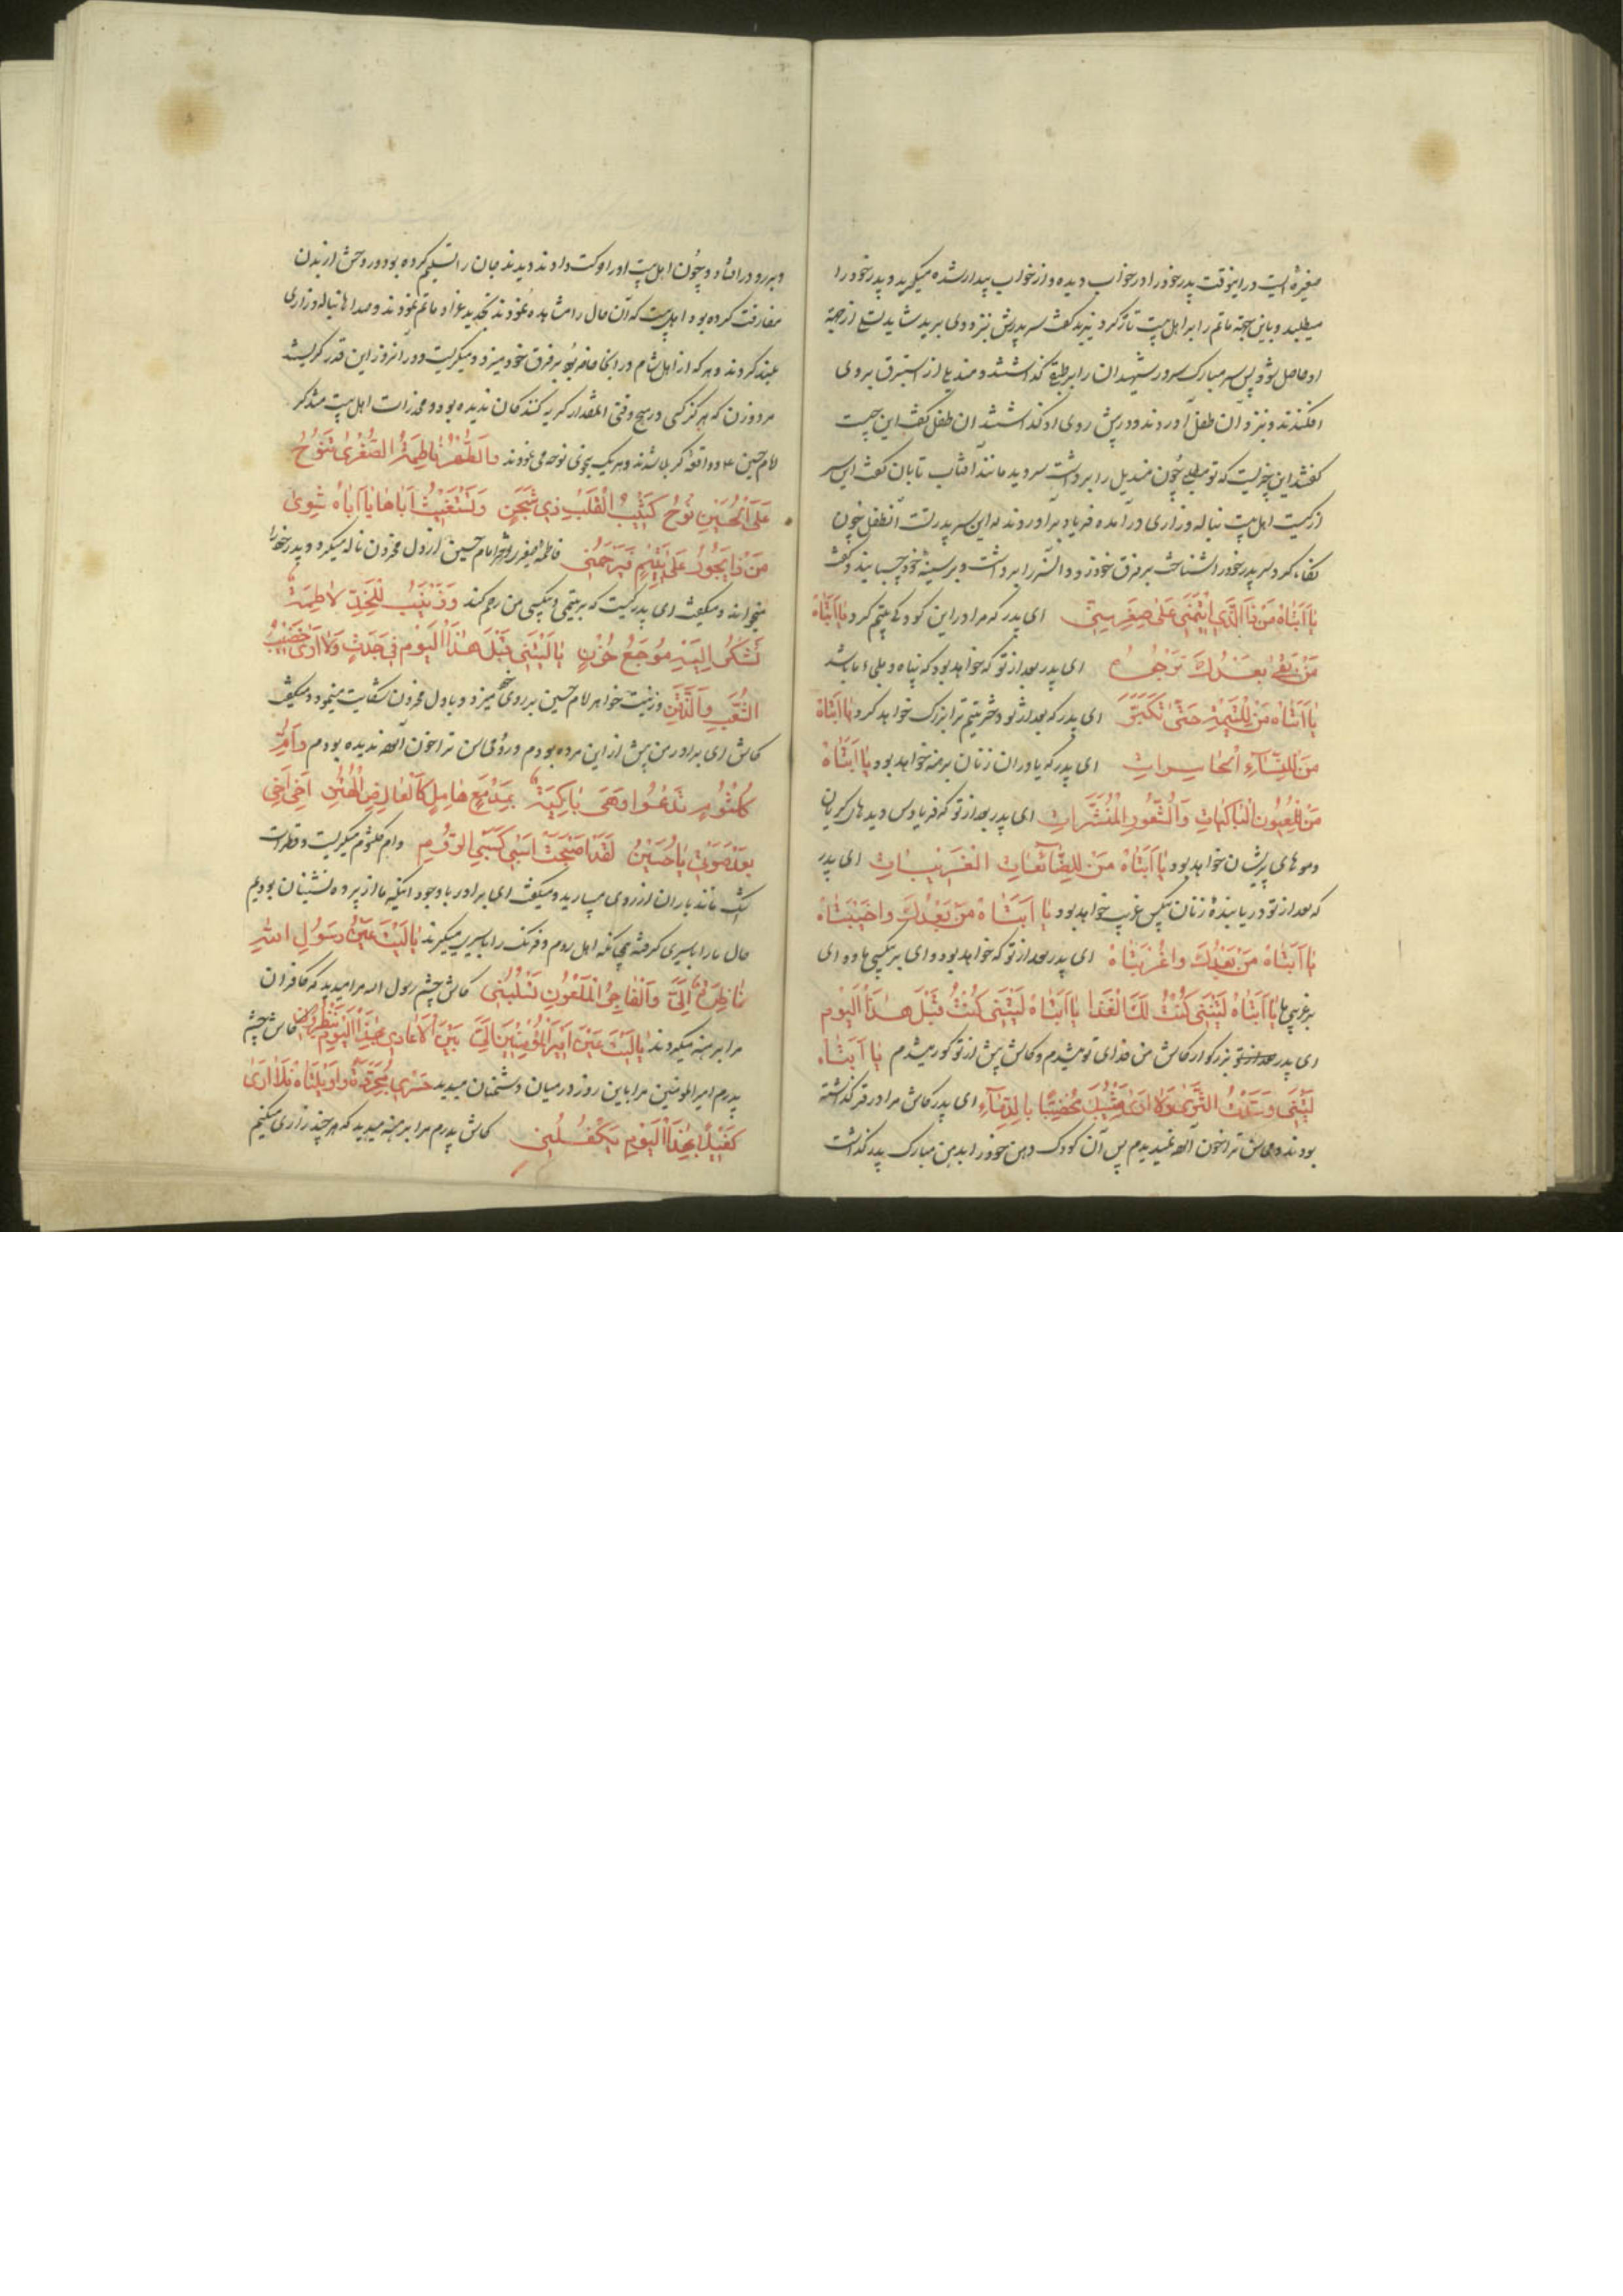 صغیرهٔ ایست در اینوقت پدر خود را در خواب دیده و از خواب بیدار شده میگرید و پدر خود را
میطلبد و باین جهة ماتم را بر اهل بیت تازه کرد یزید گفت سر پدرش نزد وی برید شاید تسلی از جهة
او حاصل شود پس سر مبارک سرور شهیدان را بر طبقی گذاشتند و مندیلی از استبرق بر وی
افکندند و نزد آن طفل آوردند و در پیش روی او گذاشتند ان طفل گفت این چیست
گفتند این چیزیست که تو میطلبی چون مندیل را برداشت سر دید مانند آفتاب تابان گفت این سر
از کیست اهل بیت بناله و زاری در آمده فریاد بر اوردند که این سر پدر تست آنطفل چون
نگاه کرد سر پدر خود را شناخت بر فرق خود زد و آنسر را برداشت و بر سینهٔ خود چسبانید و گفت
یا اَبَتاهُ مَنْ ذَا الَّذی اَیْتَمَنی عَلی صِغَرِ سِنّی ای پدر که مرا در این کودکی یتیم کرد یا اَبَتاهُ
مَنْ بَقِیَ بَعْدَكَ نَرْجُوهُ ای پدر بعد از تو که خواهد بود که پناه و ملجاء ما باشد
یا اَبَتاهُ مَنْ لِلْیَتیمَةِ حَتّی تَکْبُرَ ای پدر که بعد از تو دختر یتیم ترا بزرک خواهد کرد یا اَبَتاهُ
مَنْ لِلنِّسآءِ الْحاسِراتِ ای پدر که یاور ان زنان برهنه خواهد بود یا اَبَتاهُ
مَنْ لِلْعُیُونِ الْباکِیاتِ وَالشُّعُورِ الْمُنْشَراتِ ای پدر بعد از تو که فریادرس دیده های گریان
و موهای پریشان خواهد بود یا اَبَتاهُ مَنْ لِلضّآئِعاتِ الْغَریباتِ ای پدر
که بعد از تو دریابندهٔ زنان بیکس غریب خواهد بود یا اَبَتاهُ مَنْ بَعْدُكَ واخَیْبَتاهُ
یا اَبَتاهُ مَنْ بَعْدُكَ واغُرْبَتاهُ ای پدر بعد از تو که خواهد بود وای بر بیکسی ما و وای
بر غریبی ما یا اَبَتاهُ لَیْتَنی کُنْتُ لَكَ الْفِدا یا اَبَتاهُ لَیْتَنی کُنْتُ قَبْلَ هذَا الْیَوْمِ
ای پدر بزرگوار کاش من فدای تو میشدم و کاش پیش از تو کور میشدم یا اَبَتاهُ
لَیْتَنی وُسِّدْتُ الثَّری وَلا اَری شَیْبَكَ مُخَضَّبًا بِالدِّمآءِ ای پدر کاش مرا در قبر گذاشته
بودند و محاسن ترا خون آلود نمیدیدم پس آن کودک دهن خود را بدهن مبارک پدر گذاشت
و بر رو در افتاد و چون اهل بیت او را حرکت دادند دیدند جان را تسلیم کرده بود و روحش از بدن
مفارقت کرده بود اهل بیت که آن حال را مشاهده نمودند تجدید عزا و ماتم نمودند و صدا ها بناله و زاری
بلند کردند و هر که از اهل شام در آنجا حاضر بود بر فرق خود میزد و میگریست و در آنروز این قدر گریستند
مرد و زن که هرگز کسی در هیچ وقتی آنقدار گریه کنندکان ندیده بود و مخدرات اهل بیت متذکر
امام حسین ع و واقعهٔ کربلا شدند و هر یک بنحوی نوحه می نمودند وَالطُّهْرُ فاطِمَةُ الصُّغْری تَنُوحُ
عَلَی الْحُسَیْنِ نَوْحَ کَئیبِ الْقَلْبِ ذی شَجَنٍ وَتَسْتَغیثُ اَباها یا اَباهُ سِوی
مَنْ ذا یَجُودُ عَلی یُتْمٍ فَیَرْحَمُنی فاطمه صغری دختر امام حسین از دل محزون ناله میکرد و پدر خود را
میخواند و میگفت ای پدر کیست که بر یتیمی و بیکسی من رحم کند وَزَیْنَبُ لِلْخَدِّ لاطِمَةٌ
تَشْکُو اِلَیْهِ مُوجَعَ حُزْنٍ یا لَیْتَنی قَبْلَ هذَا الْیَوْمِ فی جَدَثٍ وَلا اَری خَضیبَ
الشَّیْبِ وَالذَّقَنِ و زینب خواهر امام حسین بر روی خود میزد و با دل محزون شکایت مینمود و میگفت
کاش ای برادر من پیش از این مرده بودم و روی و محاسن ترا خون آلود ندیده بودم وَاُمُّ
کُلْثُومٍ تَدْعُوا وَهْیَ باکِیَةٌ بِمَدْمَعٍ هامِلٍ کَالْعارِضِ الْهَتِنِ اَخی اَخی
یا حُسَیْنُ لَقَدْ اَصْبَحْتُ اُسْبی کَسَبْیِ الرُّومِ و ام کلثوم میگریست و قطرات
اشک مانند باران از روی میبارید و میگفت ای برادر با وجود اینکه ما از پرده نشینان بودیم
حال ما را باسیری گرفته همچنانکه اهل روم و فرنک را باسیری میگیرند یا لَیْتَ عَیْنَ رَسُولِ اللهِ
ناظِرَةٌ اِلَیَّ وَالْفاجِرُ الْمَلْعُونُ تَسْلُبُنی کاش چشم رسول الله مرا میدید که کافران
مرا برهنه میکردند یا لَیْتَ عَیْنَ اَمیرِ الْمُؤْمِنینَ اِلَیَّ بَیْنَ الْاَعادی بِهذَا الْیَوْمِ کاش چشم
پدرم امیر المومنین مرا باین روز در میان دشمنان میدید حَسْری مُجَرَّدَةً واوَیْلَتاهُ فَلا اَری
کَفیلًا بِهذَا الْیَوْمِ یَکْفُلُنی کاش پدرم مرا برهنه میدید که هر چند زاری میکنم